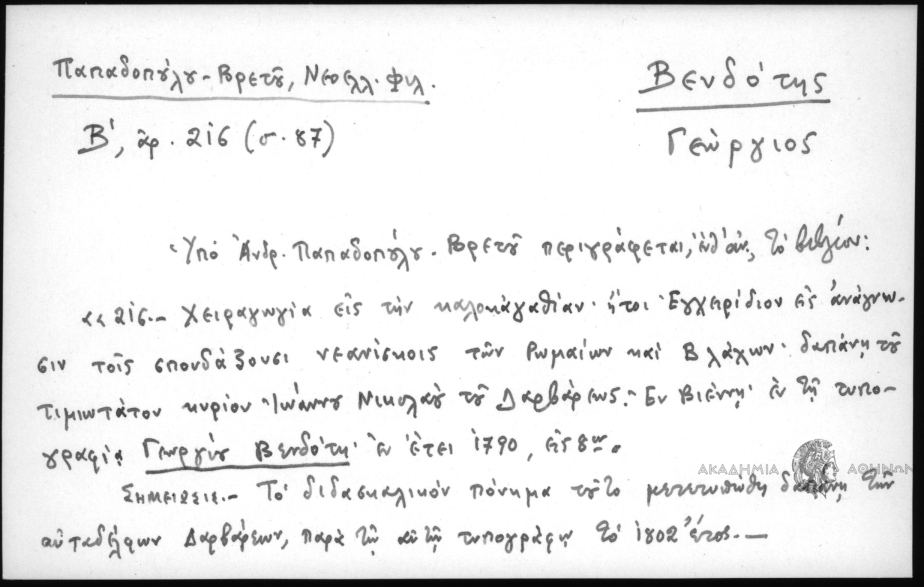 Παπαδοπούλου - Βρετοῦ, Νεοελλ. Φιλ.
Βενδότης
Β', ἀρ. 216 (σ. 87)
Γεώργιος
Ὑπό Ἀνδρ. Παπαδοπούλου - Βρετοῦ περιγράφεται, ἐνθ' ἀν., τό βιβλίον:
«216.- Χειραγωγία εἰς τήν καλοκἀγαθίαν· ἤτοι Ἐγχειρίδιον εἰς ἀνάγνω-
σιν τοῖς σπουδάζουσι νεανίσκοις τῶν Ρωμαίων καί Βλάχων· δαπάνῃ τοῦ
τιμιωτάτου κυρίου Ἰωάννου Νικολάου τοῦ Δαρβάρεως. Ἐν Βιέννῃ· ἐν τῇ τυπο-
γραφίᾳ Γεωργίου Βενδότη· ἐν ἔτει 1790, εἰς 8ον.
Σημείωσις.- Τό διδασκαλικόν πόνημα τοῦτο μετετυπώθη δαπάνῃ τῶν
αὐταδέλφων Δαρβάρεων, παρά τῇ αὐτῇ τυπογράφῳ τό 1802 ἔτος. —
ΑΚΑΔΗΜΙΑ ΑΘΗΝΩΝ